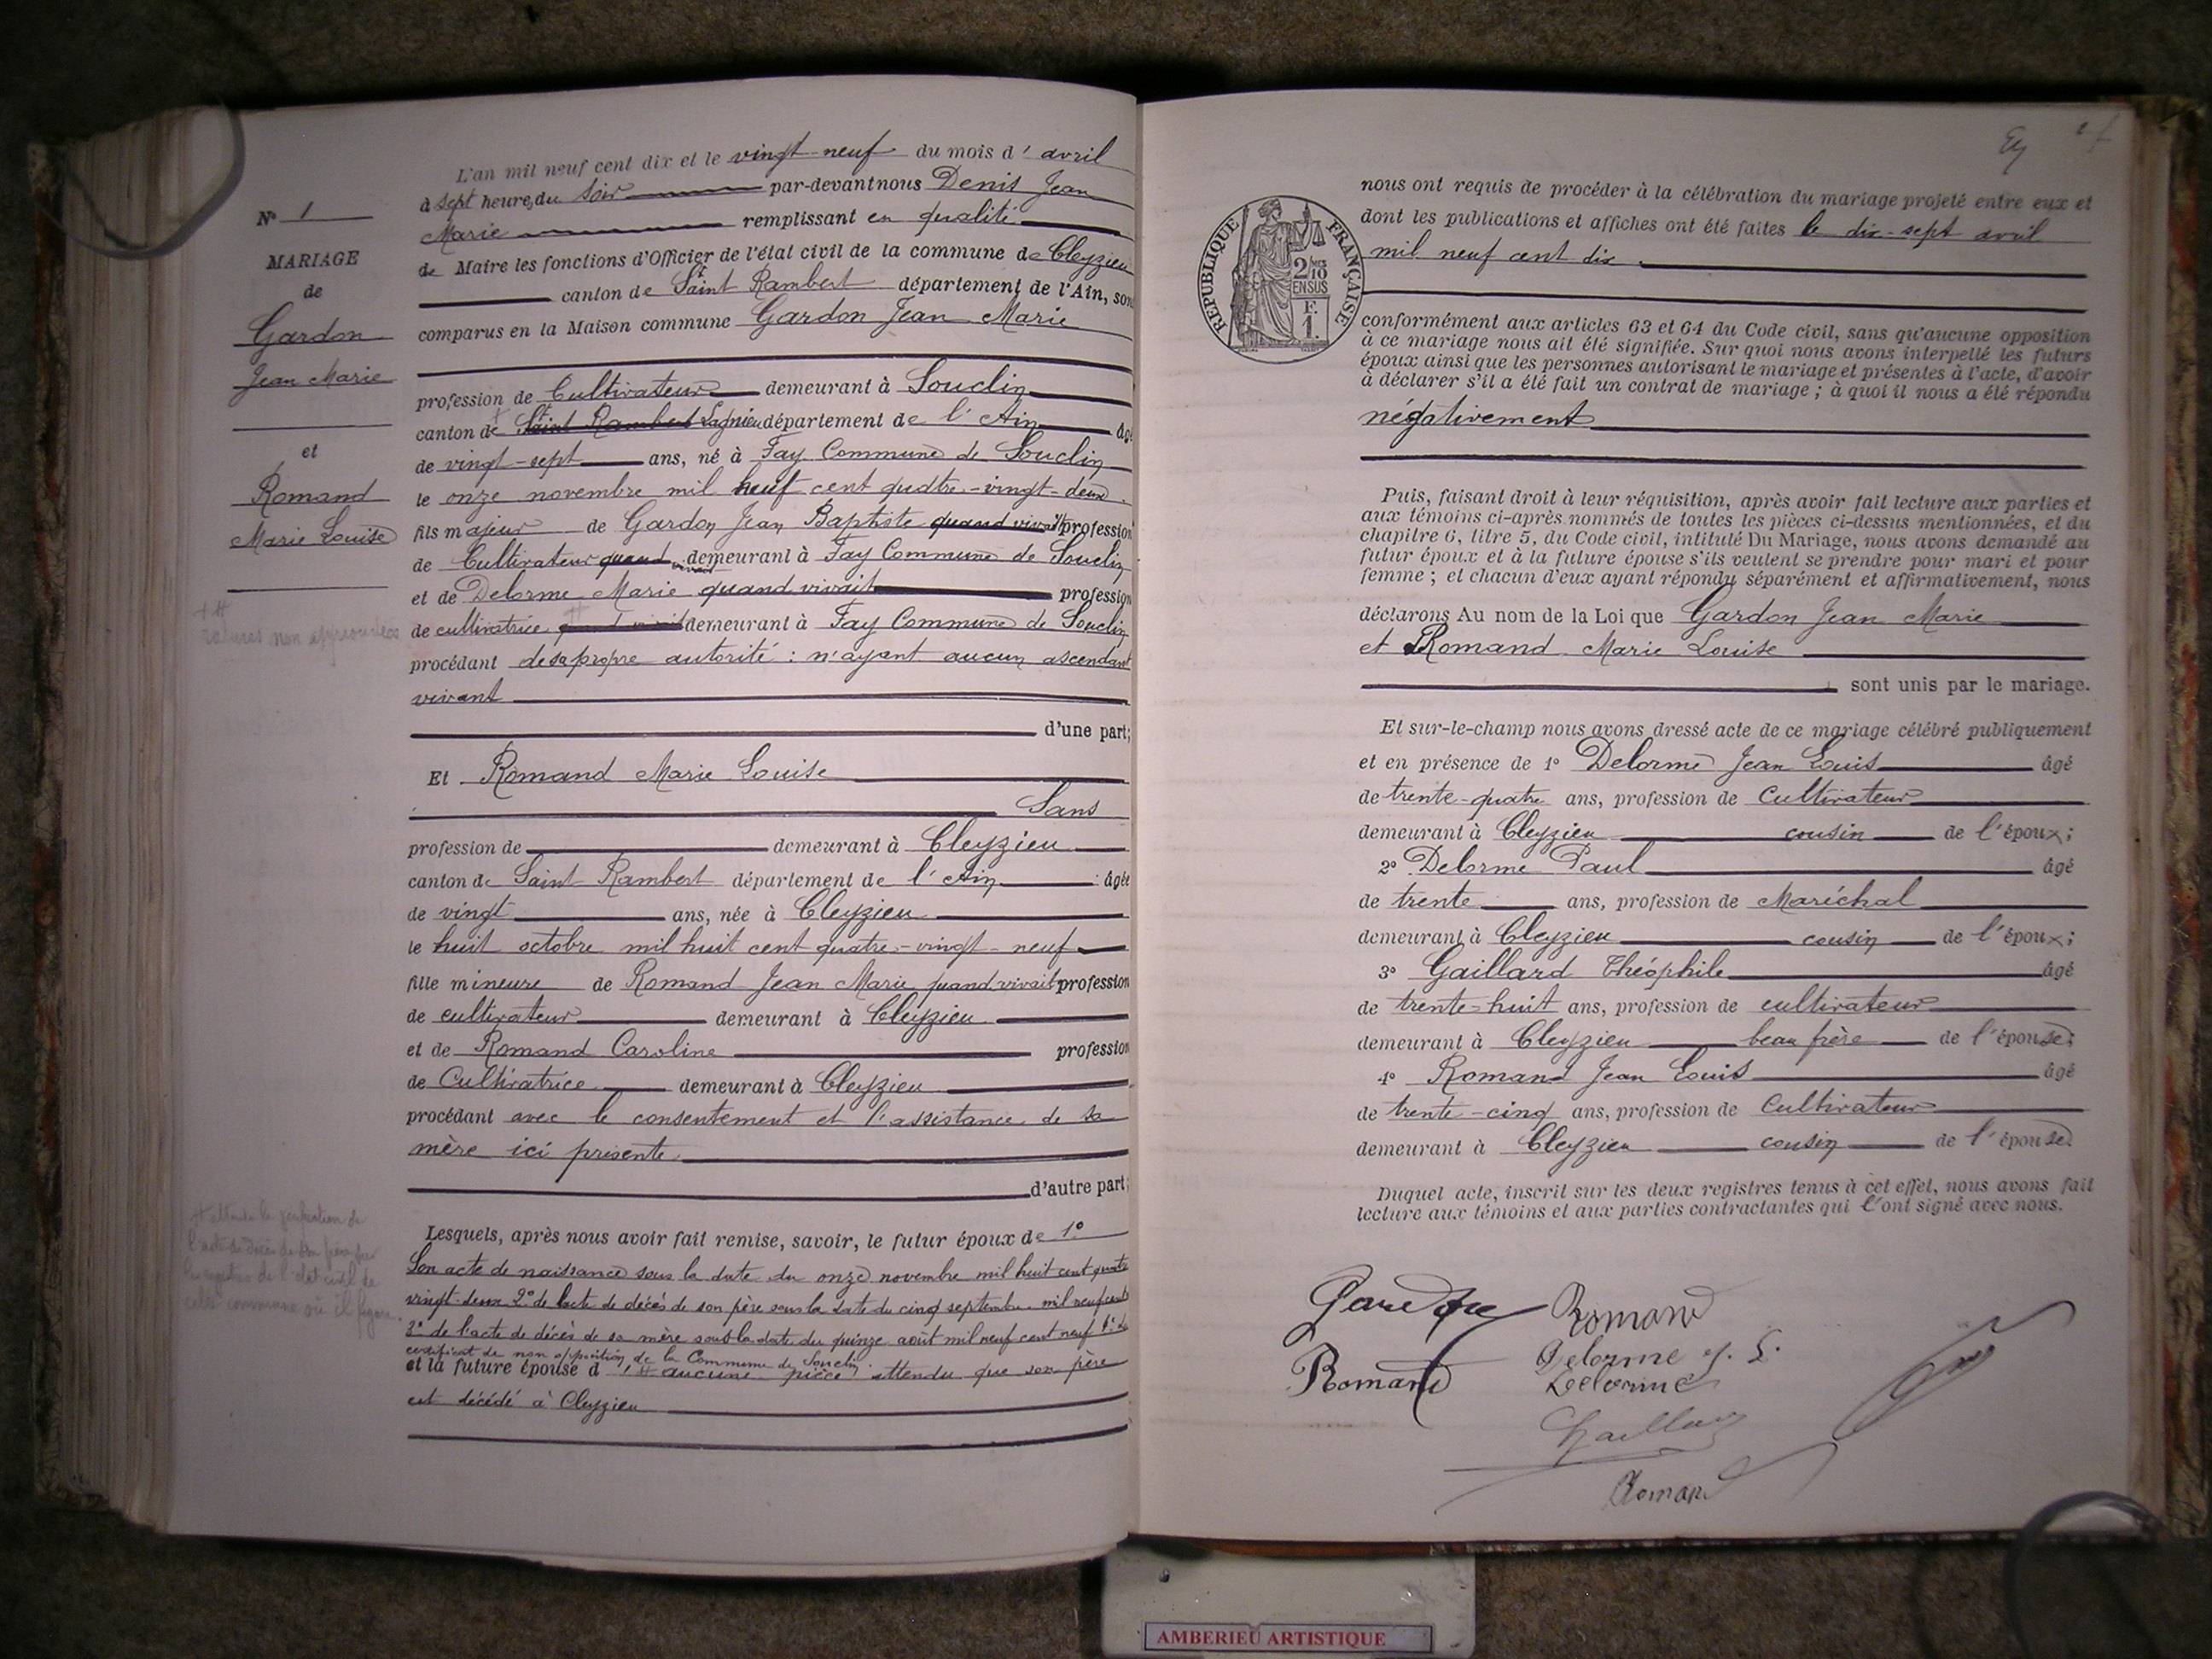 N° 1
MARIAGE
de
Gardon
Jean Marie
et
Romand
Marie Louise
ratures non approuvées
L'an mil neuf cent dix et le vingt-neuf du mois d' avril
à sept heures du soir par-devant nous Denis Jean
Marie remplissant en qualité
de Maire les fonctions d'Officier de l'état civil de la commune de Cleyzieu
canton de Saint Rambert département de l'Ain, sont
comparus en la Maison commune Gardon Jean Marie
profession de Cultivateur demeurant à Souclin
canton de Saint Rambert Lagnieu département de l'Ain âgé
de vingt-sept ans, né à Fay Commune de Souclin
le onze novembre mil neuf cent quatre-vingt-deux
fils majeur de Gardon Jean Baptiste quand vivait profession
de Cultivateur quand vivait demeurant à Fay Commune de Souclin
et de Delorme Marie quand vivait profession
de cultivatrice quand vivait demeurant à Fay Commune de Souclin
procédant de sa propre autorité : n'ayant aucun ascendant
vivant
d'une part;
Et Romand Marie Louise
Sans
profession de demeurant à Cleyzieu
canton de Saint Rambert département de l'Ain âgée
de vingt ans, née à Cleyzieu
le huit octobre mil huit cent quatre-vingt-neuf
fille mineure de Romand Jean Marie quand vivait profession
de cultivateur demeurant à Cleyzieu
et de Romand Caroline profession
de Cultivatrice demeurant à Cleyzieu
procédant avec le consentement et l'assistance de sa
mère ici présente
d'autre part;
Lesquels, après nous avoir fait remise, savoir, le futur époux de 1°
Son acte de naissance sous la date du onze novembre mil huit cent quatre
vingt-deux 2° de l'acte de décès de son père sous la date du cinq septembre mil neuf cent
3° de l'acte de décès de sa mère sous la date du quinze août mil neuf cent neuf
certificat de non opposition de la Commune de Souclin
et la future épouse d' aucune pièce attendu que son père
est décédé à Cleyzieu
l'acte de décès de son père
les registres de l'état civil de
cette commune où il figure
REPUBLIQUE FRANÇAISE
2/10 EN SUS
F. 1.
nous ont requis de procéder à la célébration du mariage projeté entre eux et
dont les publications et affiches ont été faites le dix-sept avril
mil neuf cent dix
conformément aux articles 63 et 64 du Code civil, sans qu'aucune opposition
à ce mariage nous ait été signifiée. Sur quoi nous avons interpellé les futurs
époux ainsi que les personnes autorisant le mariage et présentes à l'acte, d'avoir
à déclarer s'il a été fait un contrat de mariage ; à quoi il nous a été répondu
négativement
Puis, faisant droit à leur réquisition, après avoir fait lecture aux parties et
aux témoins ci-après nommés de toutes les pièces ci-dessus mentionnées, et du
chapitre 6, titre 5, du Code civil, intitulé Du Mariage, nous avons demandé au
futur époux et à la future épouse s'ils veulent se prendre pour mari et pour
femme ; et chacun d'eux ayant répondu séparément et affirmativement, nous
déclarons Au nom de la Loi que Gardon Jean Marie
et Romand Marie Louise
sont unis par le mariage.
Et sur-le-champ nous avons dressé acte de ce mariage célébré publiquement
et en présence de 1° Delorme Jean Louis âgé
de trente-quatre ans, profession de Cultivateur
demeurant à Cleyzieu cousin de l'époux;
2° Delorme Paul âgé
de trente ans, profession de Maréchal
demeurant à Cleyzieu cousin de l'époux;
3° Gaillard Théophile âgé
de trente-huit ans, profession de cultivateur
demeurant à Cleyzieu beau frère de l'épouse;
4° Romand Jean Louis âgé
de trente-cinq ans, profession de Cultivateur
demeurant à Cleyzieu cousin de l'épouse
Duquel acte, inscrit sur les deux registres tenus à cet effet, nous avons fait
lecture aux témoins et aux parties contractantes qui l'ont signé avec nous.
Romand
Romand
Delorme J. L.
Delorme
Romand
AMBERIEU ARTISTIQUE